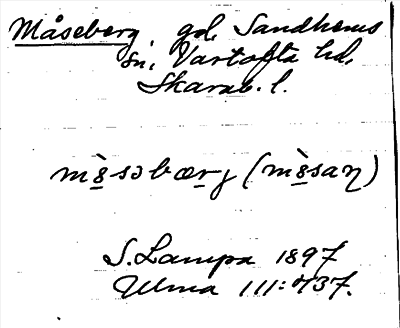 Måseberg gd, Sandhems
sn, Vartofta hd,
Skarab. l.
mə̀səbærj (mə̀san)
S. Lampa 1897
Ulma 111:737.